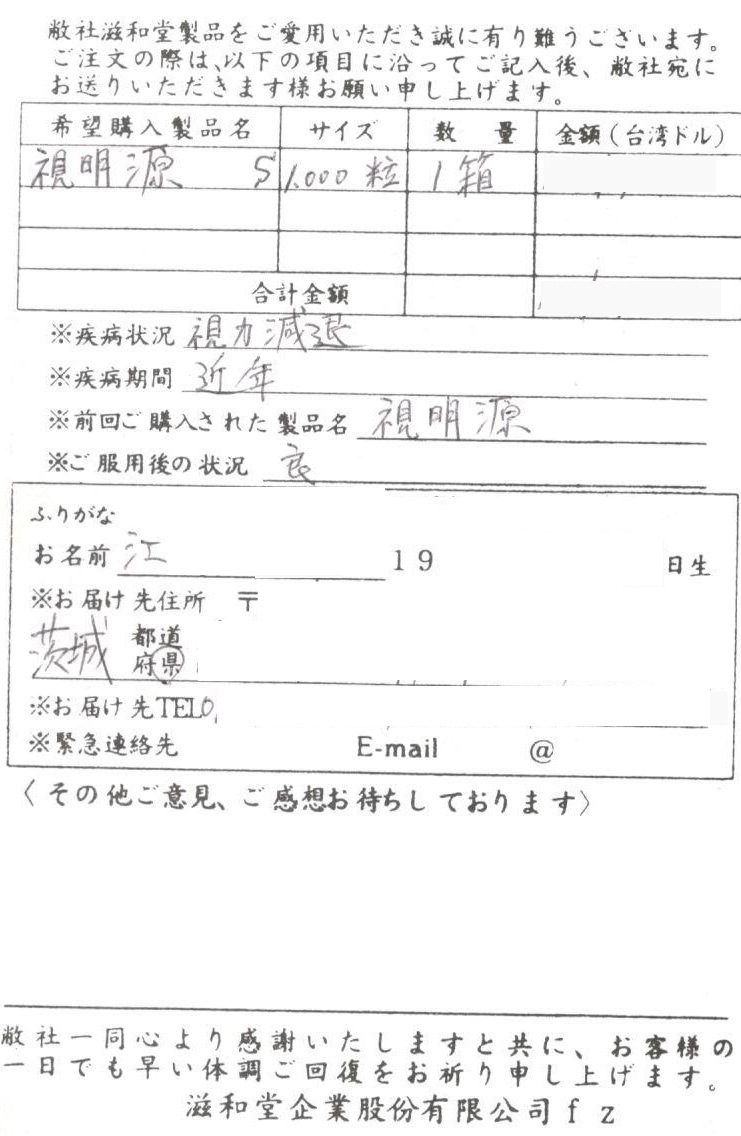 敝社滋和堂製品をご愛用いただき誠に有り難うございます。
ご注文の際は、以下の項目に沿ってご記入後、敝社宛に
お送りいただきます様お願い申し上げます。
希望購入製品名 サイズ 数量 金額(台湾ドル)
視明源 S 1,000粒 1箱
合計金額
※疾病状況 視力減退
※疾病期間 近年
※前回ご購入された製品名 視明源
※ご服用後の状況 良
ふりがな
お名前 江 19 日生
※お届け先住所 〒
茨城 都道
府県
※お届け先TEL0
※緊急連絡先 E-mail @
〈その他ご意見、ご感想お待ちしております〉
敝社一同心より感謝いたしますと共に、お客様の
一日でも早い体調ご回復をお祈り申し上げます。
滋和堂企業股份有限公司fz